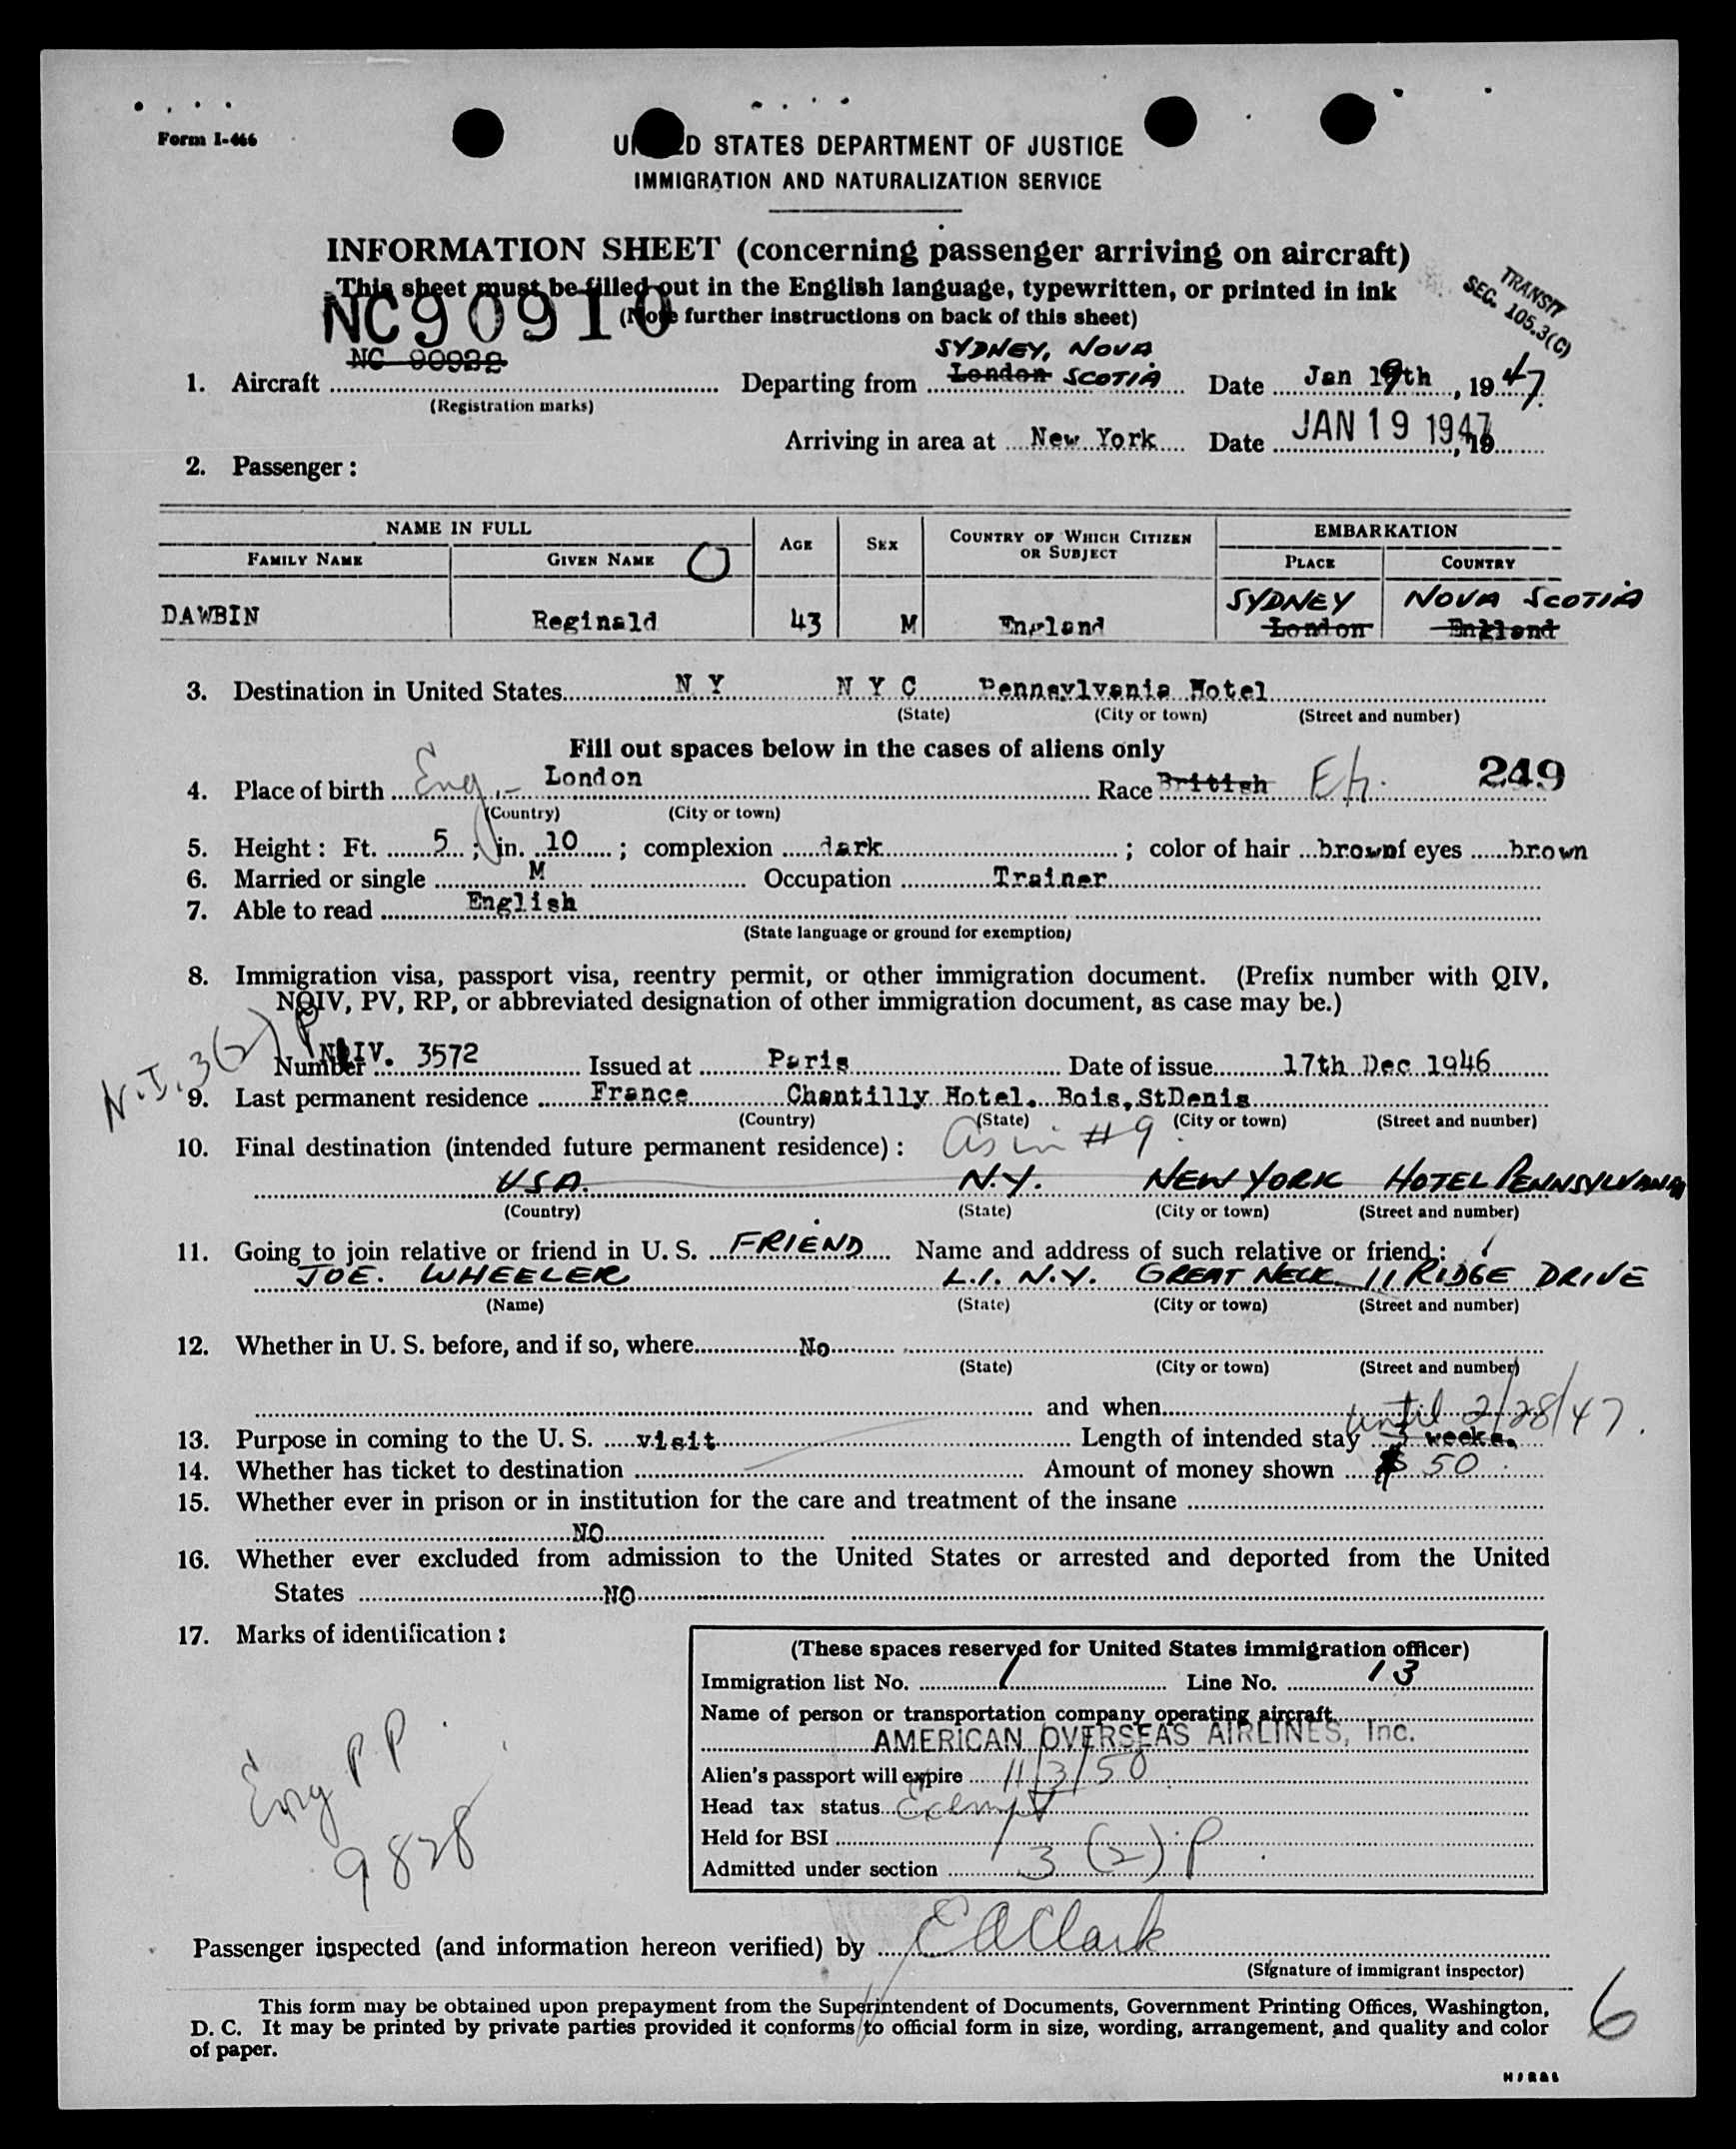 Form I-466
UNITED STATES DEPARTMENT OF JUSTICE
IMMIGRATION AND NATURALIZATION SERVICE
INFORMATION SHEET (concerning passenger arriving on aircraft)
This sheet must be filled out in the English language, typewritten, or printed in ink
(Note further instructions on back of this sheet)
TRANSIT
SEC. 105.3(C)
NC90910
NC 90922
SYDNEY, NOVA
1. Aircraft Departing from London SCOTIA Date Jan 19th, 1947.
(Registration marks)
Arriving in area at New York Date JAN 19 1947, 19
2. Passenger :
NAME IN FULL AGE SEX COUNTRY OF WHICH CITIZEN OR SUBJECT EMBARKATION
FAMILY NAME GIVEN NAME PLACE COUNTRY
SYDNEY NOVA SCOTIA
DAWBIN Reginald 43 M England London England
3. Destination in United States N Y N Y C Pennsylvania Hotel
(State) (City or town) (Street and number)
Fill out spaces below in the cases of aliens only
249
4. Place of birth Eng.- London Race British Eh.
(Country) (City or town)
5. Height : Ft. 5 ; in. 10 ; complexion dark ; color of hair brown of eyes brown
6. Married or single M Occupation Trainer
7. Able to read English
(State language or ground for exemption)
8. Immigration visa, passport visa, reentry permit, or other immigration document. (Prefix number with QIV,
NQIV, PV, RP, or abbreviated designation of other immigration document, as case may be.)
N.I. 3(2) P
Number NQIV. 3572 Issued at Paris Date of issue 17th Dec 1946
9. Last permanent residence France Chantilly Hotel. Bois, StDenis
(Country) (State) (City or town) (Street and number)
10. Final destination (intended future permanent residence) : as in #9
USA. N.Y. NEW YORK HOTEL PENNSYLVANIA
(Country) (State) (City or town) (Street and number)
11. Going to join relative or friend in U. S. FRIEND Name and address of such relative or friend :
JOE. WHEELER L.I. N.Y. GREAT NECK 11 RIDGE DRIVE
(Name) (State) (City or town) (Street and number)
12. Whether in U. S. before, and if so, where No
(State) (City or town) (Street and number)
and when
until 2/28/47.
13. Purpose in coming to the U. S. visit Length of intended stay 3 weeks.
14. Whether has ticket to destination Amount of money shown $ 50
15. Whether ever in prison or in institution for the care and treatment of the insane
NO
16. Whether ever excluded from admission to the United States or arrested and deported from the United
States NO
17. Marks of identification :
Eng P P.
9828
(These spaces reserved for United States immigration officer)
Immigration list No. 1 Line No. 13
Name of person or transportation company operating aircraft
AMERICAN OVERSEAS AIRLINES, Inc.
Alien's passport will expire 11/3/50
Head tax status Exempt
Held for BSI
Admitted under section 3 (2) P
Passenger inspected (and information hereon verified) by E A Clark
(Signature of immigrant inspector)
This form may be obtained upon prepayment from the Superintendent of Documents, Government Printing Offices, Washington,
D. C. It may be printed by private parties provided it conforms to official form in size, wording, arrangement, and quality and color
of paper.
6